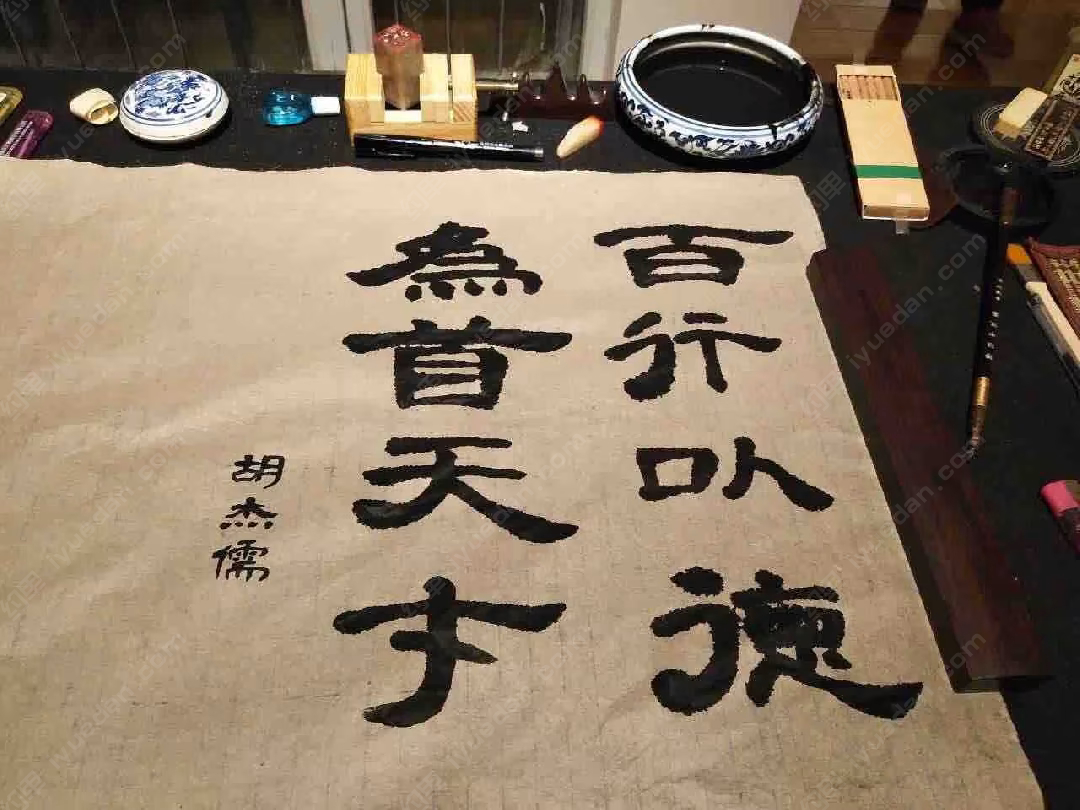 百行以德
為首天才
胡杰儒
iyuedan.com